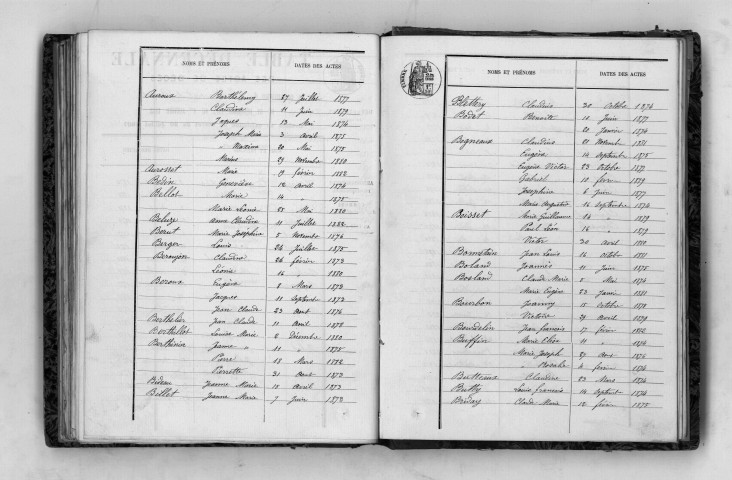 NOMS ET PRÉNOMS DATES DES ACTES
Auroux Barthélemy 27 Juillet 1877
Claudine 11 Juin 1879
Jacques 13 Mai 1874
Joseph Marie 3 Avril 1875
" Maxime 20 Mai 1878
Marius 29 Novembre 1880
Aurosset Marie 19 février 1882
Bédin Geneviève 12 Avril 1876
Bellot Marie 14 " 1875
Marie Léonie 25 Mai 1880
Beluze Anne Claudine 11 Juillet 1882
Berut Marie Joséphine 5 Novembre 1876
Berger Louis 26 Juillet 1875
Beronjon Claudine 26 février 1873
Léonie 16 " 1880
Beroux Eugène 8 Mars 1873
Jacques 11 Septembre 1873
Jean Claude 23 Aout 1876
Berthelier Jean Claude 11 Avril 1878
Berthillot Louise Marie 2 Décembre 1880
Berthinier Jeanne 11 " 1875
Pierre 18 Mars 1878
Pierrette 31 Aout 1873
Bideau Jeanne Marie 18 Avril 1873
Billet Jeanne Marie 7 Juin 1873
NOMS ET PRÉNOMS DATES DES ACTES
Blettery Claudius 20 Octobre 1876
Bodet Benoite 10 Juin 1877
20 Janvier 1874
Bogneaux Claudius 21 Novembre 1881
Eugène 14 Septembre 1875
Eugène Victor 23 Octobre 1873
Gabriel 10 févr 1879
Joséphine 6 Juin 1877
Marie Augustine 16 Septembre 1874
Boisset Marie Guillaume 16 " 1879
Paul Léon 16 " 1879
Victor 20 Avril 1880
Bornstein Jean Louis 16 Octobre 1881
Boland Joannès 11 Juin 1875
Bosland Claude Marie 5 Mai 1874
Marie Eugène 23 Janvier 1881
Bourbon Joanny 15 Octobre 1878
Victoire 29 Avril 1879
Bourdelin Jean François 17 févr 1882
Buffin Marie Elise 11 " 1874
Marie Joseph 27 Aout 1876
Rosalie 4 févr 1874
Berthieux Claudine 23 Mars 1874
Bully Louis François 14 Septembre 1874
Briday Claude Marie 12 févr 1875